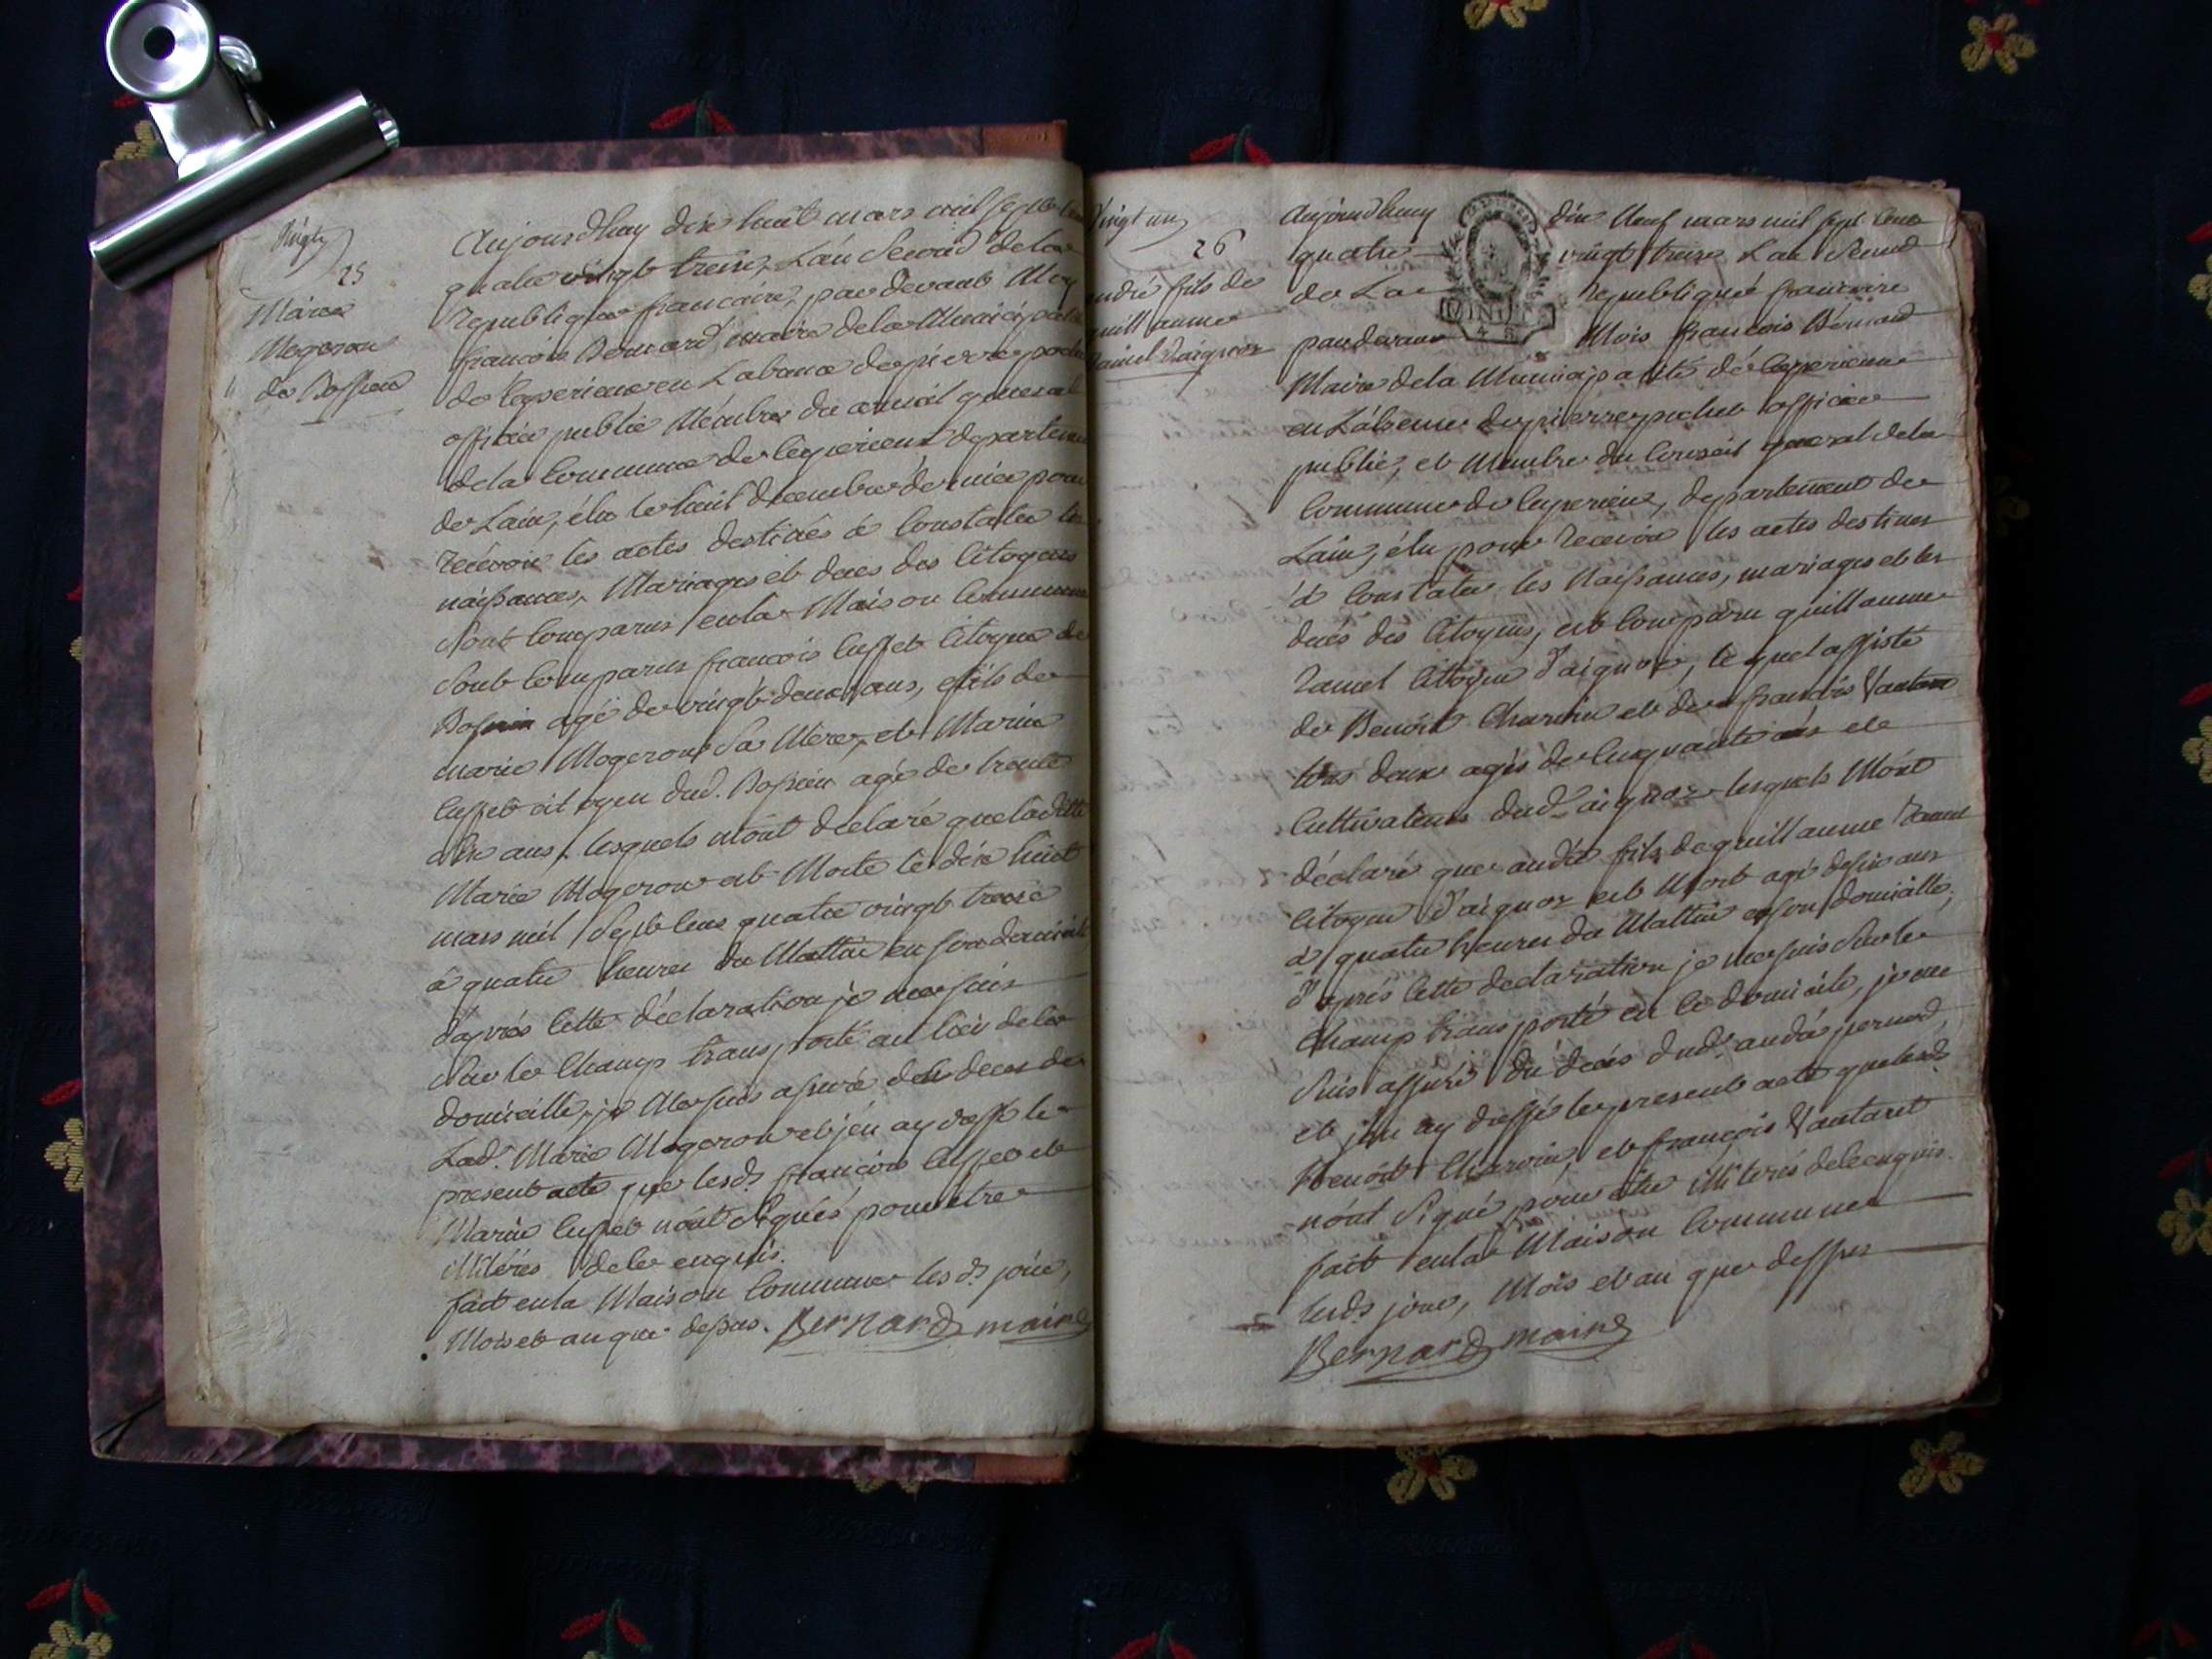 Vingt
25
Marie
Mogeron
de Bossieu
Aujourdhuy dix huit mars mil sept cent
quatre vingt treize, L'an Second de la
republique francaise, par devant Moy
francois Bernard maire de la Municipalité
de Leyerieu en Labance de pierre pochet
officier public Membre du conseil general
de la Commune de leyerieu departement
de Lain, élu le huit decembre dernier pour
recevoir les actes destinés à Constater les
naissances, Mariages et deces des Citoyens
Sont Comparus en la Maison Commune
Sont Comparus francois Cusset Citoyen de
agé de vingt deux ans, fils de
marie Mogeron Sa Mere, et Marin
Cusset citoyen dud. Bossieu agé de trente
dix ans, lesquels m'ont declaré que ladite
Marie Mogeron est Morte le dix huit
mars mil Sept Cens quatre vingt treize
à quatre heures du Mattin en son domicile
d'après Cette déclaration je me suis
Sur le Champ transporté au lieu de la
domicille, je Me suis assuré de deces de
Lad. Marie Mogeron et j'en ay dressé le
present acte que lesd. francois Cusset et
Marin Cusset n'ont Signés pour etre
illitérés de ce enquis.
fait en la Maison Commune les d. jour,
Mois et an que dessus. Bernard maire
Vingt un
26
andré fils de
guillaume
Ramel Daignoz
Aujourdhuy dix Neuf mars mil sept Cent
quatre vingt treize L'an Second
de La republique francaise
pardevant Mois francois Bernard
Maire de la Municipalité de leyerieu
en L'absence de pierre pochet officier
public, et Membre du Conseil general de la
Commune de leyerieu, departement de
Lain, élu pour recevoir les actes destinés
à Constater les Naissances, mariages et les
deces des Citoyens, est Comparu guillaume
Ramel Citoyen D'aignoz, le quel assisté
de Benoit Charvin et de francois Vantaret
tous deux agés de Cinquante ans et
Cultivateurs dud. aignoz lesquels M'ont
déclaré que andré fils de guillaume Ramel
Citoyen D'aignoz est Mort agé de six ans
à quatre heures du Mattin en son domicille,
D'après Cette declaration je me suis Sur le
Champ transporté en le domicile, je me
Suis assuré du deces dud. andré
et j'en ay dressé le present acte que lesd.
Benoit Charvin, et francois Vantaret
n'ont Signé pour etre illiterés de ce enquis.
fait en la Maison Commune
lesd. jour, Mois et an que dessus
Bernard maire